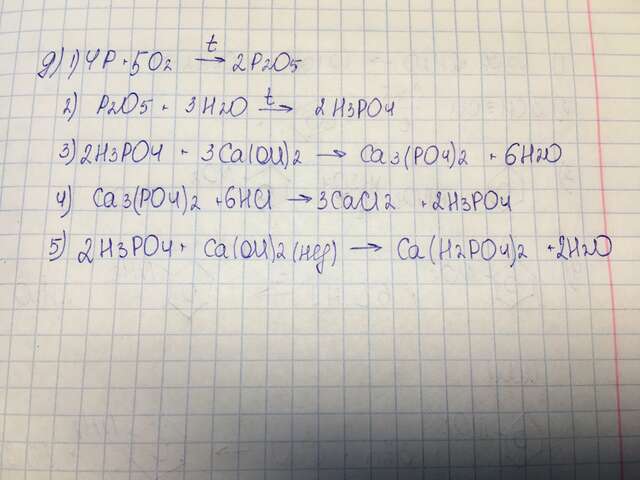 д) 1) 4P + 5O2 t→ 2P2O5
2) P2O5 + 3H2O t→ 2H3PO4
3) 2H3PO4 + 3Ca(OH)2 → Ca3(PO4)2 + 6H2O
4) Ca3(PO4)2 + 6HCl → 3CaCl2 + 2H3PO4
5) 2H3PO4 + Ca(OH)2 (нед) → Ca(H2PO4)2 + 2H2O